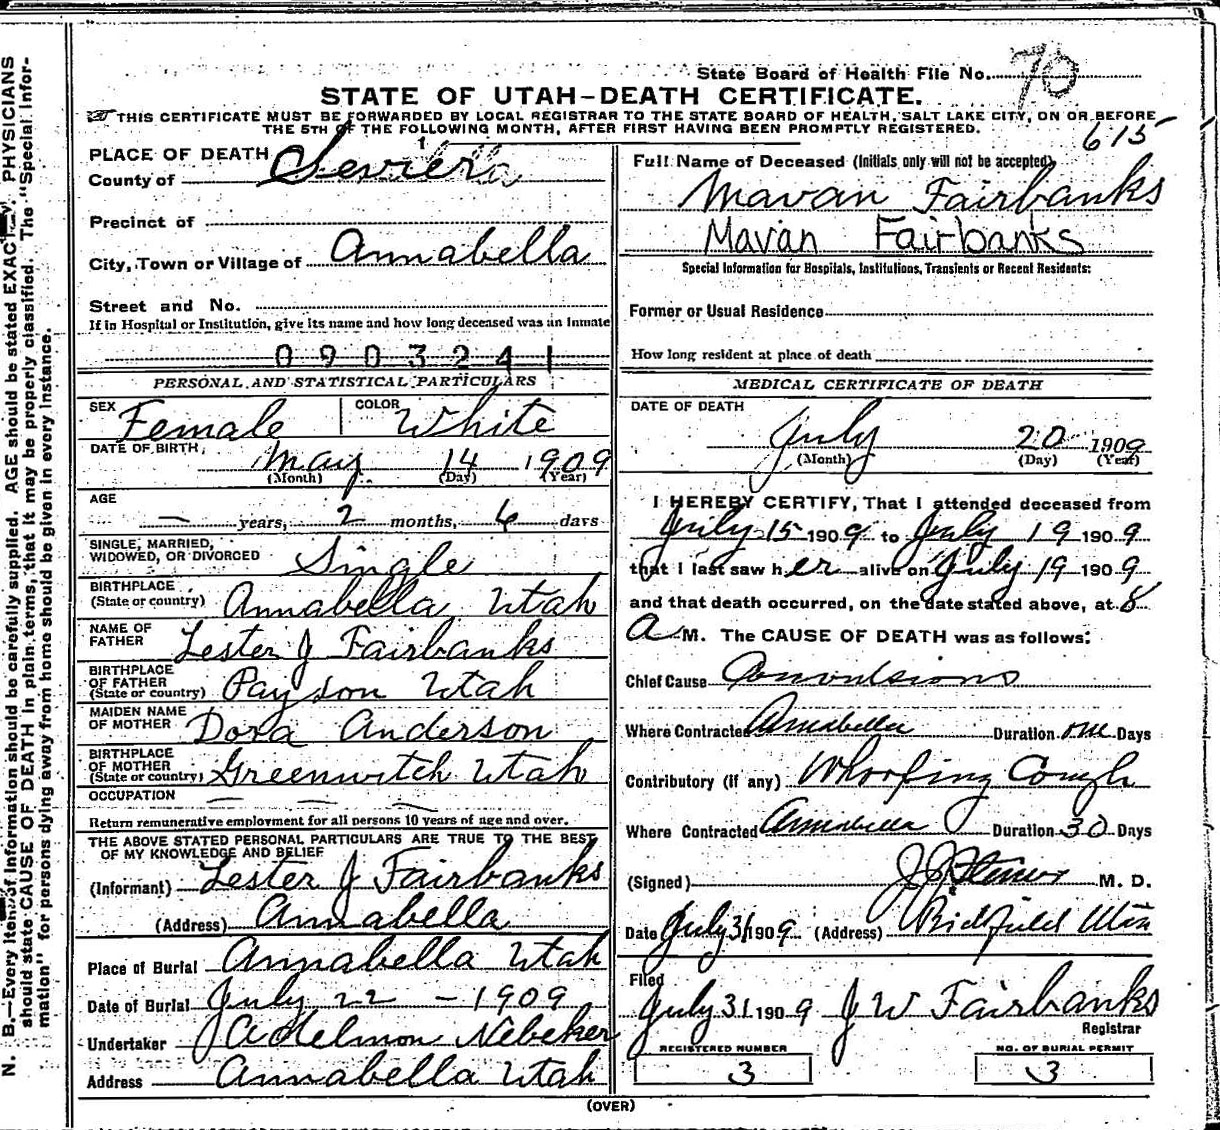 State Board of Health File No. 70
STATE OF UTAH–DEATH CERTIFICATE.
THIS CERTIFICATE MUST BE FORWARDED BY LOCAL REGISTRAR TO THE STATE BOARD OF HEALTH, SALT LAKE CITY, ON OR BEFORE
THE 5TH OF THE FOLLOWING MONTH, AFTER FIRST HAVING BEEN PROMPTLY REGISTERED.
615
PLACE OF DEATH
County of Sevier
Precinct of
City, Town or Village of Annabella
Street and No.
If in Hospital or Institution, give its name and how long deceased was an inmate
0903241
PERSONAL AND STATISTICAL PARTICULARS
SEX Female COLOR White
DATE OF BIRTH, May 14 1909
(Month) (Day) (Year)
AGE
— years, 2 months, 6 days
SINGLE, MARRIED,
WIDOWED, OR DIVORCED Single
BIRTHPLACE
(State or country) Annabella Utah
NAME OF
FATHER Lester J Fairbanks
BIRTHPLACE
OF FATHER
(State or country) Payson Utah
MAIDEN NAME
OF MOTHER Dora Anderson
BIRTHPLACE
OF MOTHER
(State or country) Greenwitch Utah
OCCUPATION — — —
Return remunerative employment for all persons 10 years of age and over.
THE ABOVE STATED PERSONAL PARTICULARS ARE TRUE TO THE BEST
OF MY KNOWLEDGE AND BELIEF
(Informant) Lester J Fairbanks
(Address) Annabella
Place of Burial Annabella Utah
Date of Burial July 22 - 1909
Undertaker Nebeker
Address Annabella Utah
Full Name of Deceased (Initials only will not be accepted)
Mavan Fairbanks
Mavan Fairbanks
Special Information for Hospitals, Institutions, Transients or Recent Residents:
Former or Usual Residence
How long resident at place of death
MEDICAL CERTIFICATE OF DEATH
DATE OF DEATH
July 20 1909
(Month) (Day) (Year)
I HEREBY CERTIFY, That I attended deceased from
July 15 1909 to July 19 1909
that I last saw her alive on July 19 1909
and that death occurred, on the date stated above, at 8
A M. The CAUSE OF DEATH was as follows:
Chief Cause Convulsions
Where Contracted Annabella Duration one Days
Contributory (if any) Whoofing Cough
Where Contracted Annabella Duration 30 Days
(Signed) M. D.
Date July 31 1909 (Address)
Filed
July 31 1909 J W Fairbanks
Registrar
REGISTERED NUMBER
3
NO. OF BURIAL PERMIT
3
(OVER)
N. B.—Every item of information should be carefully supplied. AGE should be stated EXACTLY. PHYSICIANS
should state CAUSE OF DEATH in plain terms, that it may be properly classified. The "Special Infor-
mation" for persons dying away from home should be given in every instance.